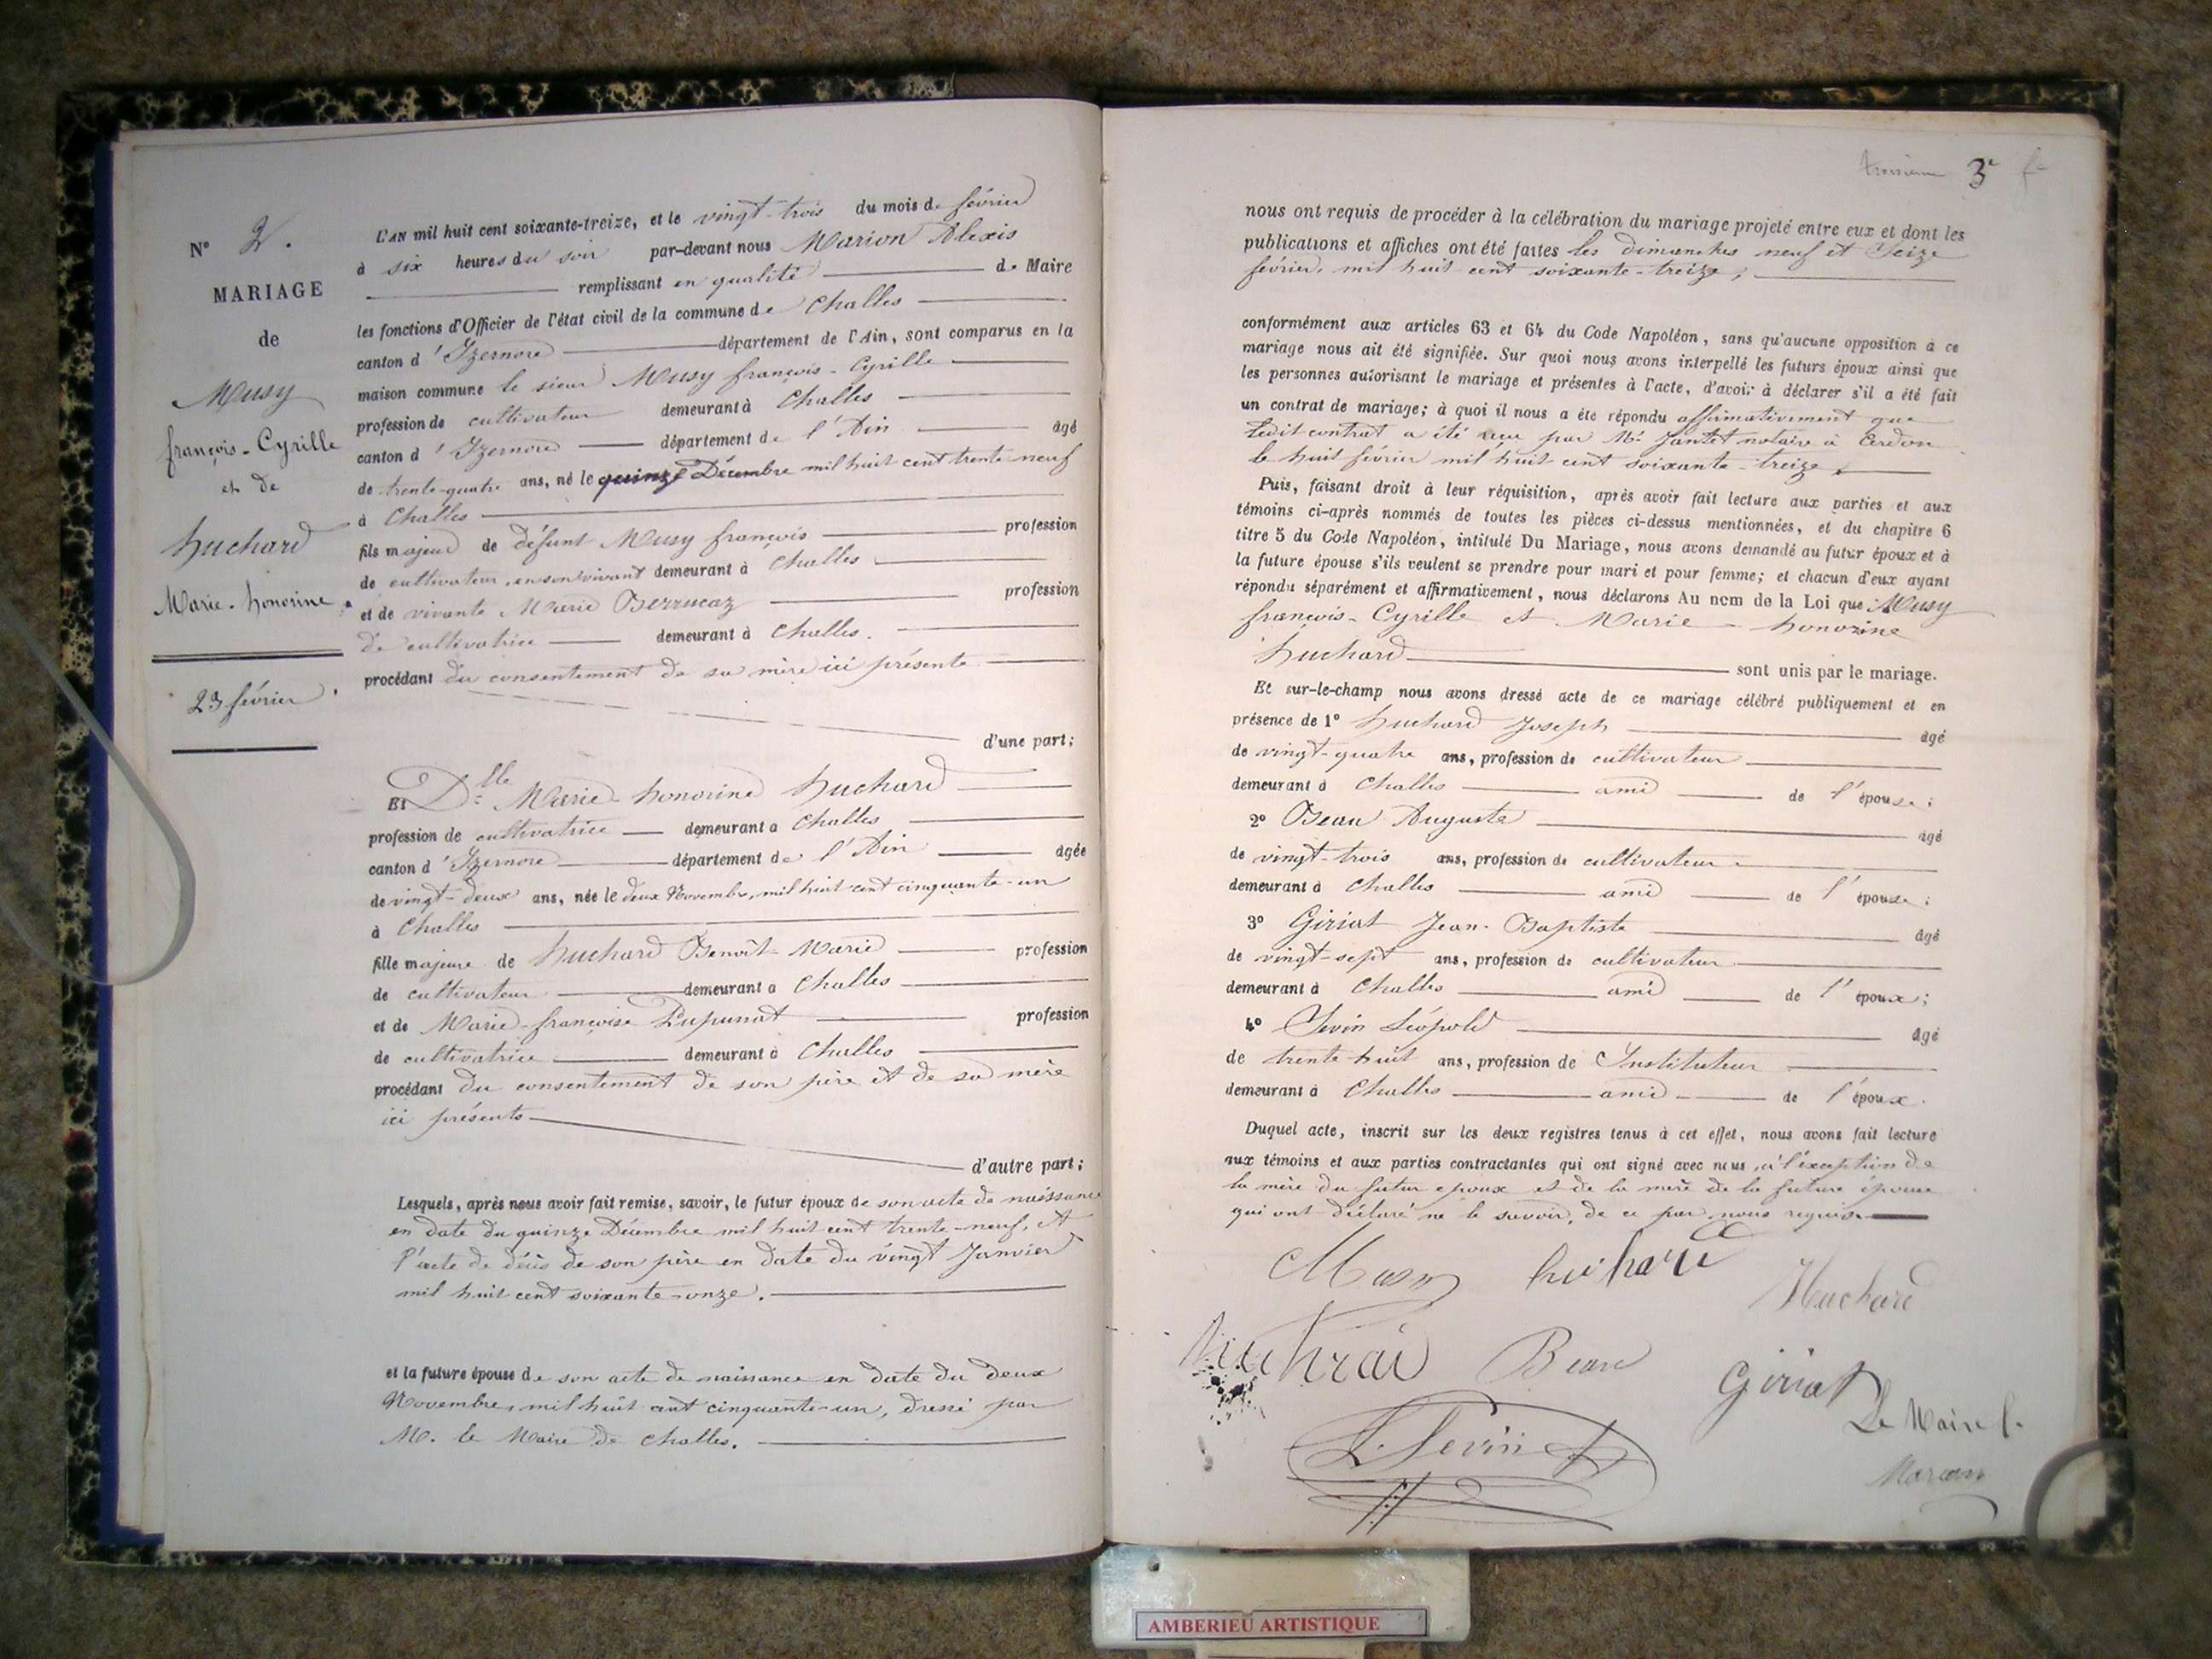 N° 2.
MARIAGE
de
Musy
françois - Cyrille
et de
Huchard
Marie - honorine
23 février
L'AN mil huit cent soixante-treize, et le vingt-trois du mois de février
à six heures du soir par-devant nous Marion Alexis
remplissant en qualité de Maire
les fonctions d'Officier de l'état civil de la commune de Challes
canton d'Izernore département de l'Ain, sont comparus en la
maison commune le sieur Musy françois - Cyrille
profession de cultivateur demeurant à Challes
canton d'Izernore département de l'Ain âgé
de trente-quatre ans, né le quinze Décembre mil huit cent trente-neuf
à Challes
fils majeur de défunt Musy françois profession
de cultivateur, en son vivant demeurant à Challes
et de vivante Marie Berrucaz profession
de cultivatrice demeurant à Challes.
procédant du consentement de sa mère ici présente
d'une part;
Et Dlle Marie - honorine Huchard
profession de cultivatrice demeurant à Challes
canton d'Izernore département de l'Ain âgée
de vingt-deux ans, née le deux Novembre, mil huit cent cinquante-un
à Challes
fille majeure de Huchard Benoît-Marie profession
de cultivateur demeurant à Challes
et de Marie-françoise Pupunat profession
de cultivatrice demeurant à Challes
procédant du consentement de son père et de sa mère
ici présents
d'autre part;
Lesquels, après nous avoir fait remise, savoir, le futur époux de son acte de naissance
en date du quinze Décembre mil huit cent trente-neuf, et
l'acte de décès de son père en date du vingt Janvier
mil huit cent soixante-onze.
et la future épouse de son acte de naissance en date du deux
Novembre, mil huit cent cinquante-un, dressé par
M. le Maire de Challes.
troisième 3e f
nous ont requis de procéder à la célébration du mariage projeté entre eux et dont les
publications et affiches ont été faites les dimanches neuf et Seize
février, mil huit cent soixante-treize,
conformément aux articles 63 et 64 du Code Napoléon, sans qu'aucune opposition à ce
mariage nous ait été signifiée. Sur quoi nous avons interpellé les futurs époux ainsi que
les personnes autorisant le mariage et présentes à l'acte, d'avoir à déclarer s'il a été fait
un contrat de mariage; à quoi il nous a été répondu affirmativement que
ledit contrat a été reçu par Me Jantet notaire à Cerdon
le huit février mil huit cent soixante-treize,
Puis, faisant droit à leur réquisition, après avoir fait lecture aux parties et aux
témoins ci-après nommés de toutes les pièces ci-dessus mentionnées, et du chapitre 6
titre 5 du Code Napoléon, intitulé Du Mariage, nous avons demandé au futur époux et à
la future épouse s'ils veulent se prendre pour mari et pour femme; et chacun d'eux ayant
répondu séparément et affirmativement, nous déclarons Au nom de la Loi que Musy
françois - Cyrille et Marie - honorine
Huchard sont unis par le mariage.
Et sur-le-champ nous avons dressé acte de ce mariage célébré publiquement et en
présence de 1° Huchard Joseph âgé
de vingt-quatre ans, profession de cultivateur
demeurant à Challes ami de l'épouse;
2° Beau Auguste âgé
de vingt-trois ans, profession de cultivateur
demeurant à Challes ami de l'épouse;
3° Giriat Jean-Baptiste âgé
de vingt-sept ans, profession de cultivateur
demeurant à Challes ami de l'époux;
4° Sevin Léopold âgé
de trente-huit ans, profession de Instituteur
demeurant à Challes ami de l'époux.
Duquel acte, inscrit sur les deux registres tenus à cet effet, nous avons fait lecture
aux témoins et aux parties contractantes qui ont signé avec nous, à l'exception de
la mère du futur époux et de la mère de la future épouse
qui ont déclaré ne le savoir, de ce par nous requis.
Musy huchard
Huchard
Beau
Giriat
Le Maire
L. Sevin
Marion
AMBERIEU ARTISTIQUE